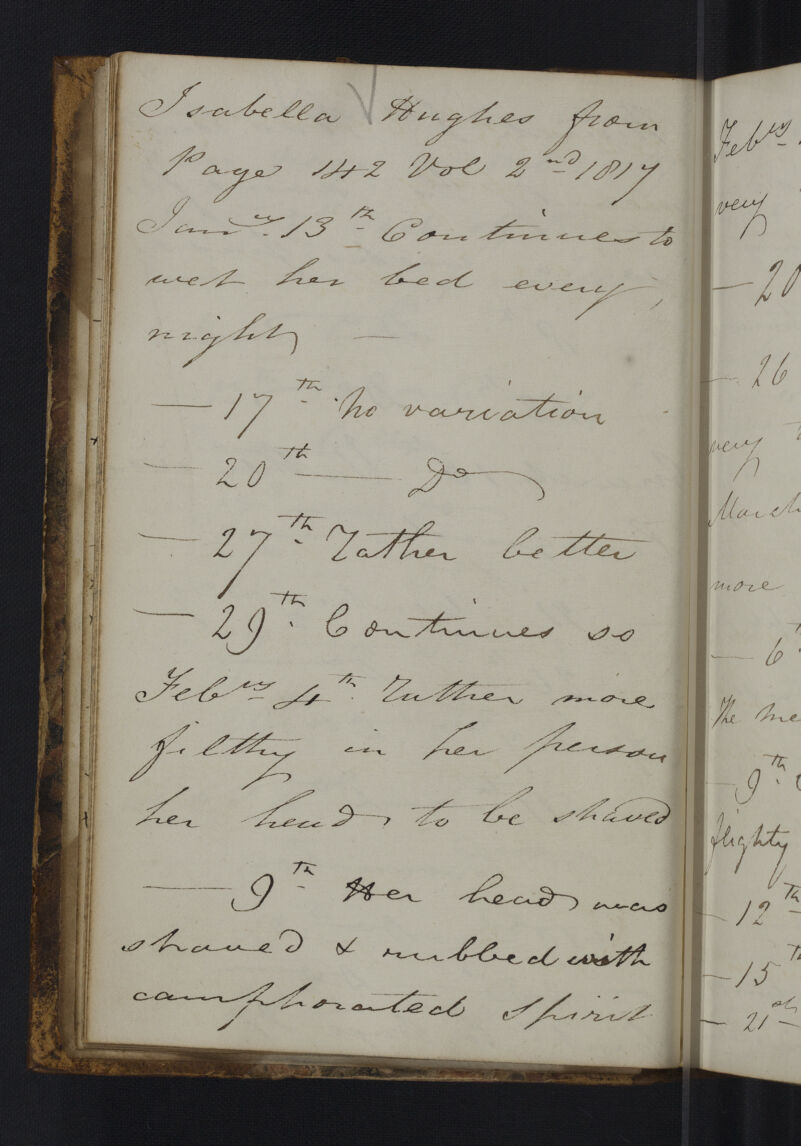 Isabella Hughes from
Page 142 Vol 2nd 1817
Janry 13th Continues to
wet her bed every
night —
— 17th no variation
— 20th — Do
— 27th Rather better
— 29th Continues so
Febry 4th Rather more
filthy in her person
her head to be shaved
— 9th Her head was
shaved & rubbed with
camphorated spirit
Febry
very
— 20
— 26
very
March
more
— 6
The me
— 9th
flighty
— 12th
— 15th
— 21st